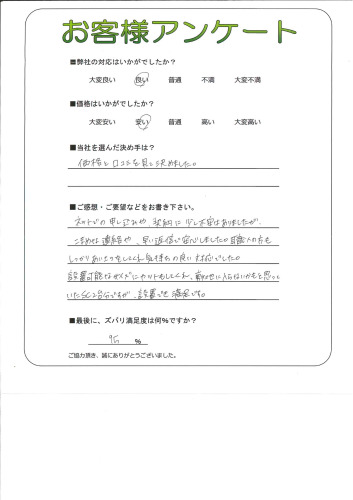 お客様アンケート
■弊社の対応はいかがでしたか?
大変良い 良い 普通 不満 大変不満
■価格はいかがでしたか?
大変安い 安い 普通 高い 大変高い
■当社を選んだ決め手は?
価格と口コミを見て決めました。
■ご感想・ご要望などをお書き下さい。
ネットでの申し込みや、契約に少し不安はありましたが、
こまめな連絡や、早い返信で安心しました。職人の方も
しっかりあいさつもしてくれ気持ちの良い対応でした。
設置可能なサイズにカットもしてくれ、 思って
いた 2台分ですが、設置でき満足です。
■最後に、ズバリ満足度は何%ですか?
95 %
ご協力頂き、誠にありがとうございました。